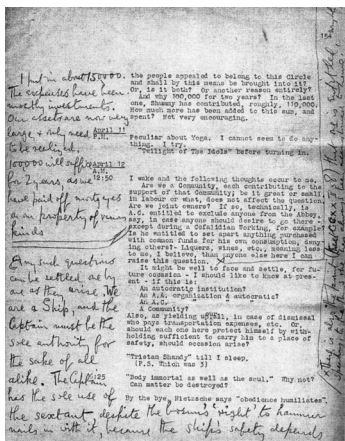 the people appealed to belong to this Circle
and shall by this means be brought into it?
Or, is it both? Or another reason entirely?
And why 100,000 for two years? In the last
one, Shummy has contributed, roughly, 110,000.
How much more has been added to this sum, and
spent? Not very encouraging.
April 11
P.M.
Peculiar about Yoga. I cannot seem to do any-
thing. I try.
"Twilight of The Idols" before turning in.
April 12
A.M.
12:50
I wake and the following thoughts occur to me,
Are we a Community, each contributing to the
support of that Community, be it great or small
in labour or what, does not affect the question.
Are we joint owners? If so, technically, is
A.C. entitled to exclude anyone from the Abbey,
say, in case anyone should desire to go there -
except during a Cefaloedian Working, for example?
Is he entitled to set apart anything purchased
with common funds for his own consumption, deny-
ing others?- Liquers, wines, etc., meaning less
to me, I believe, than anyone else here I can
raise this question.
It might be well to face and settle, for fu-
ture occasion - I should like to know at pres-
ent - if this is:
An autocratic institution?
An A.A. organization & autocratic?
An A.C. "
A Community?
Also, as yielding upsail, in case of dismissal
who pays transportation expenses, etc. Or,
should each one here protect himself by with-
holding sufficient to carry him to a place of
safety, should occasion arise?
"Tristan Shandy" till I sleep.
(P.S. Which was 3)
:25
"Body immortal as well as the soul." Why not?
Can matter be destroyed?
By the bye, Nietzsche says "obedience humiliates".
I put in about 150000.
The expenses have been
mostly investments.
Our assets are now very
large & only need
to be realized.
100000 will suffice
for 2 years as we
have paid off mortgages
on property of various
kinds
Any such questions
can be settled as by
as as they arise. We
are a Ship, and the
Captain must be the
sole authority for
the sake of all
alike. The Captain
has the sole use of
the sextant, despite the bosun's 'right' to hammer
nails in with it, because the ship's safety depends